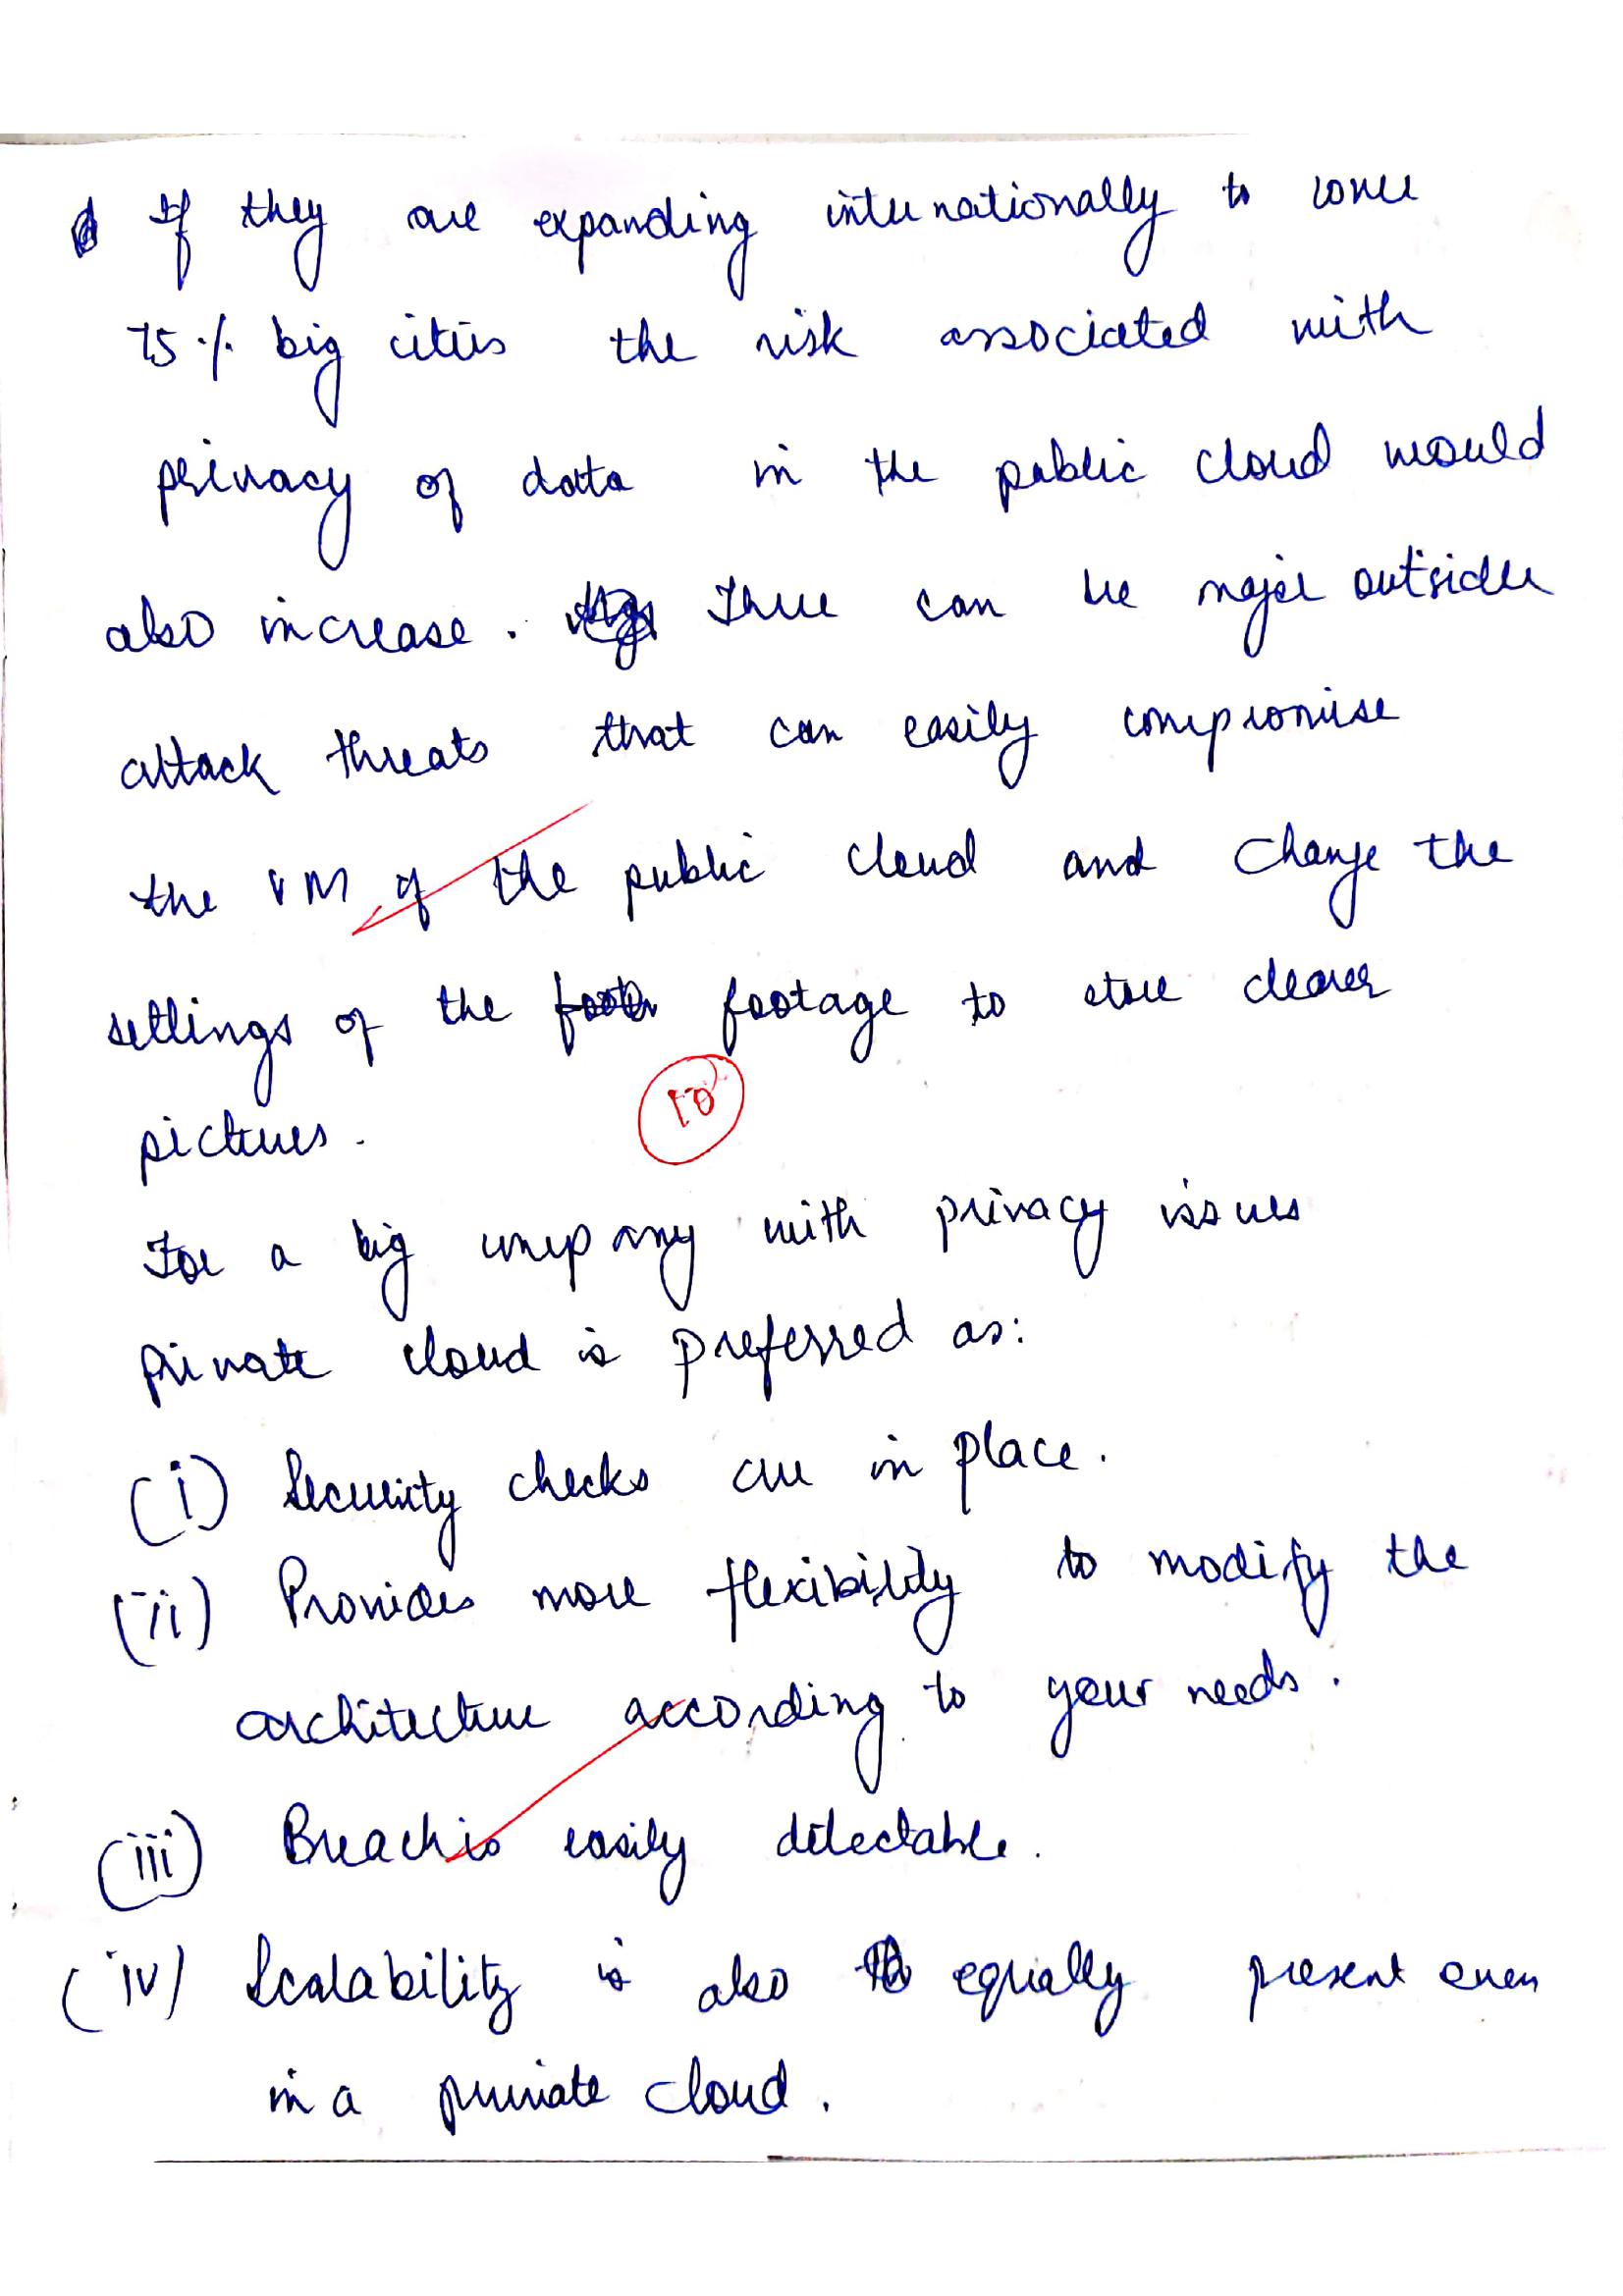 If they are expanding internationally to cover
75% big cities the risk associated with
privacy of data in the public cloud would
also increase. There can be major outsider
attack threats that can easily compromise
the VM of the public cloud and change the
settings of the footage to store clearer
pictures.
For a big company with privacy issues
private cloud is preferred as:
(i) Security checks are in place.
(ii) Provides more flexibility to modify the
architecture according to your needs.
(iii) Breach is easily detectable.
(iv) Scalability is also equally present even
in a private cloud.